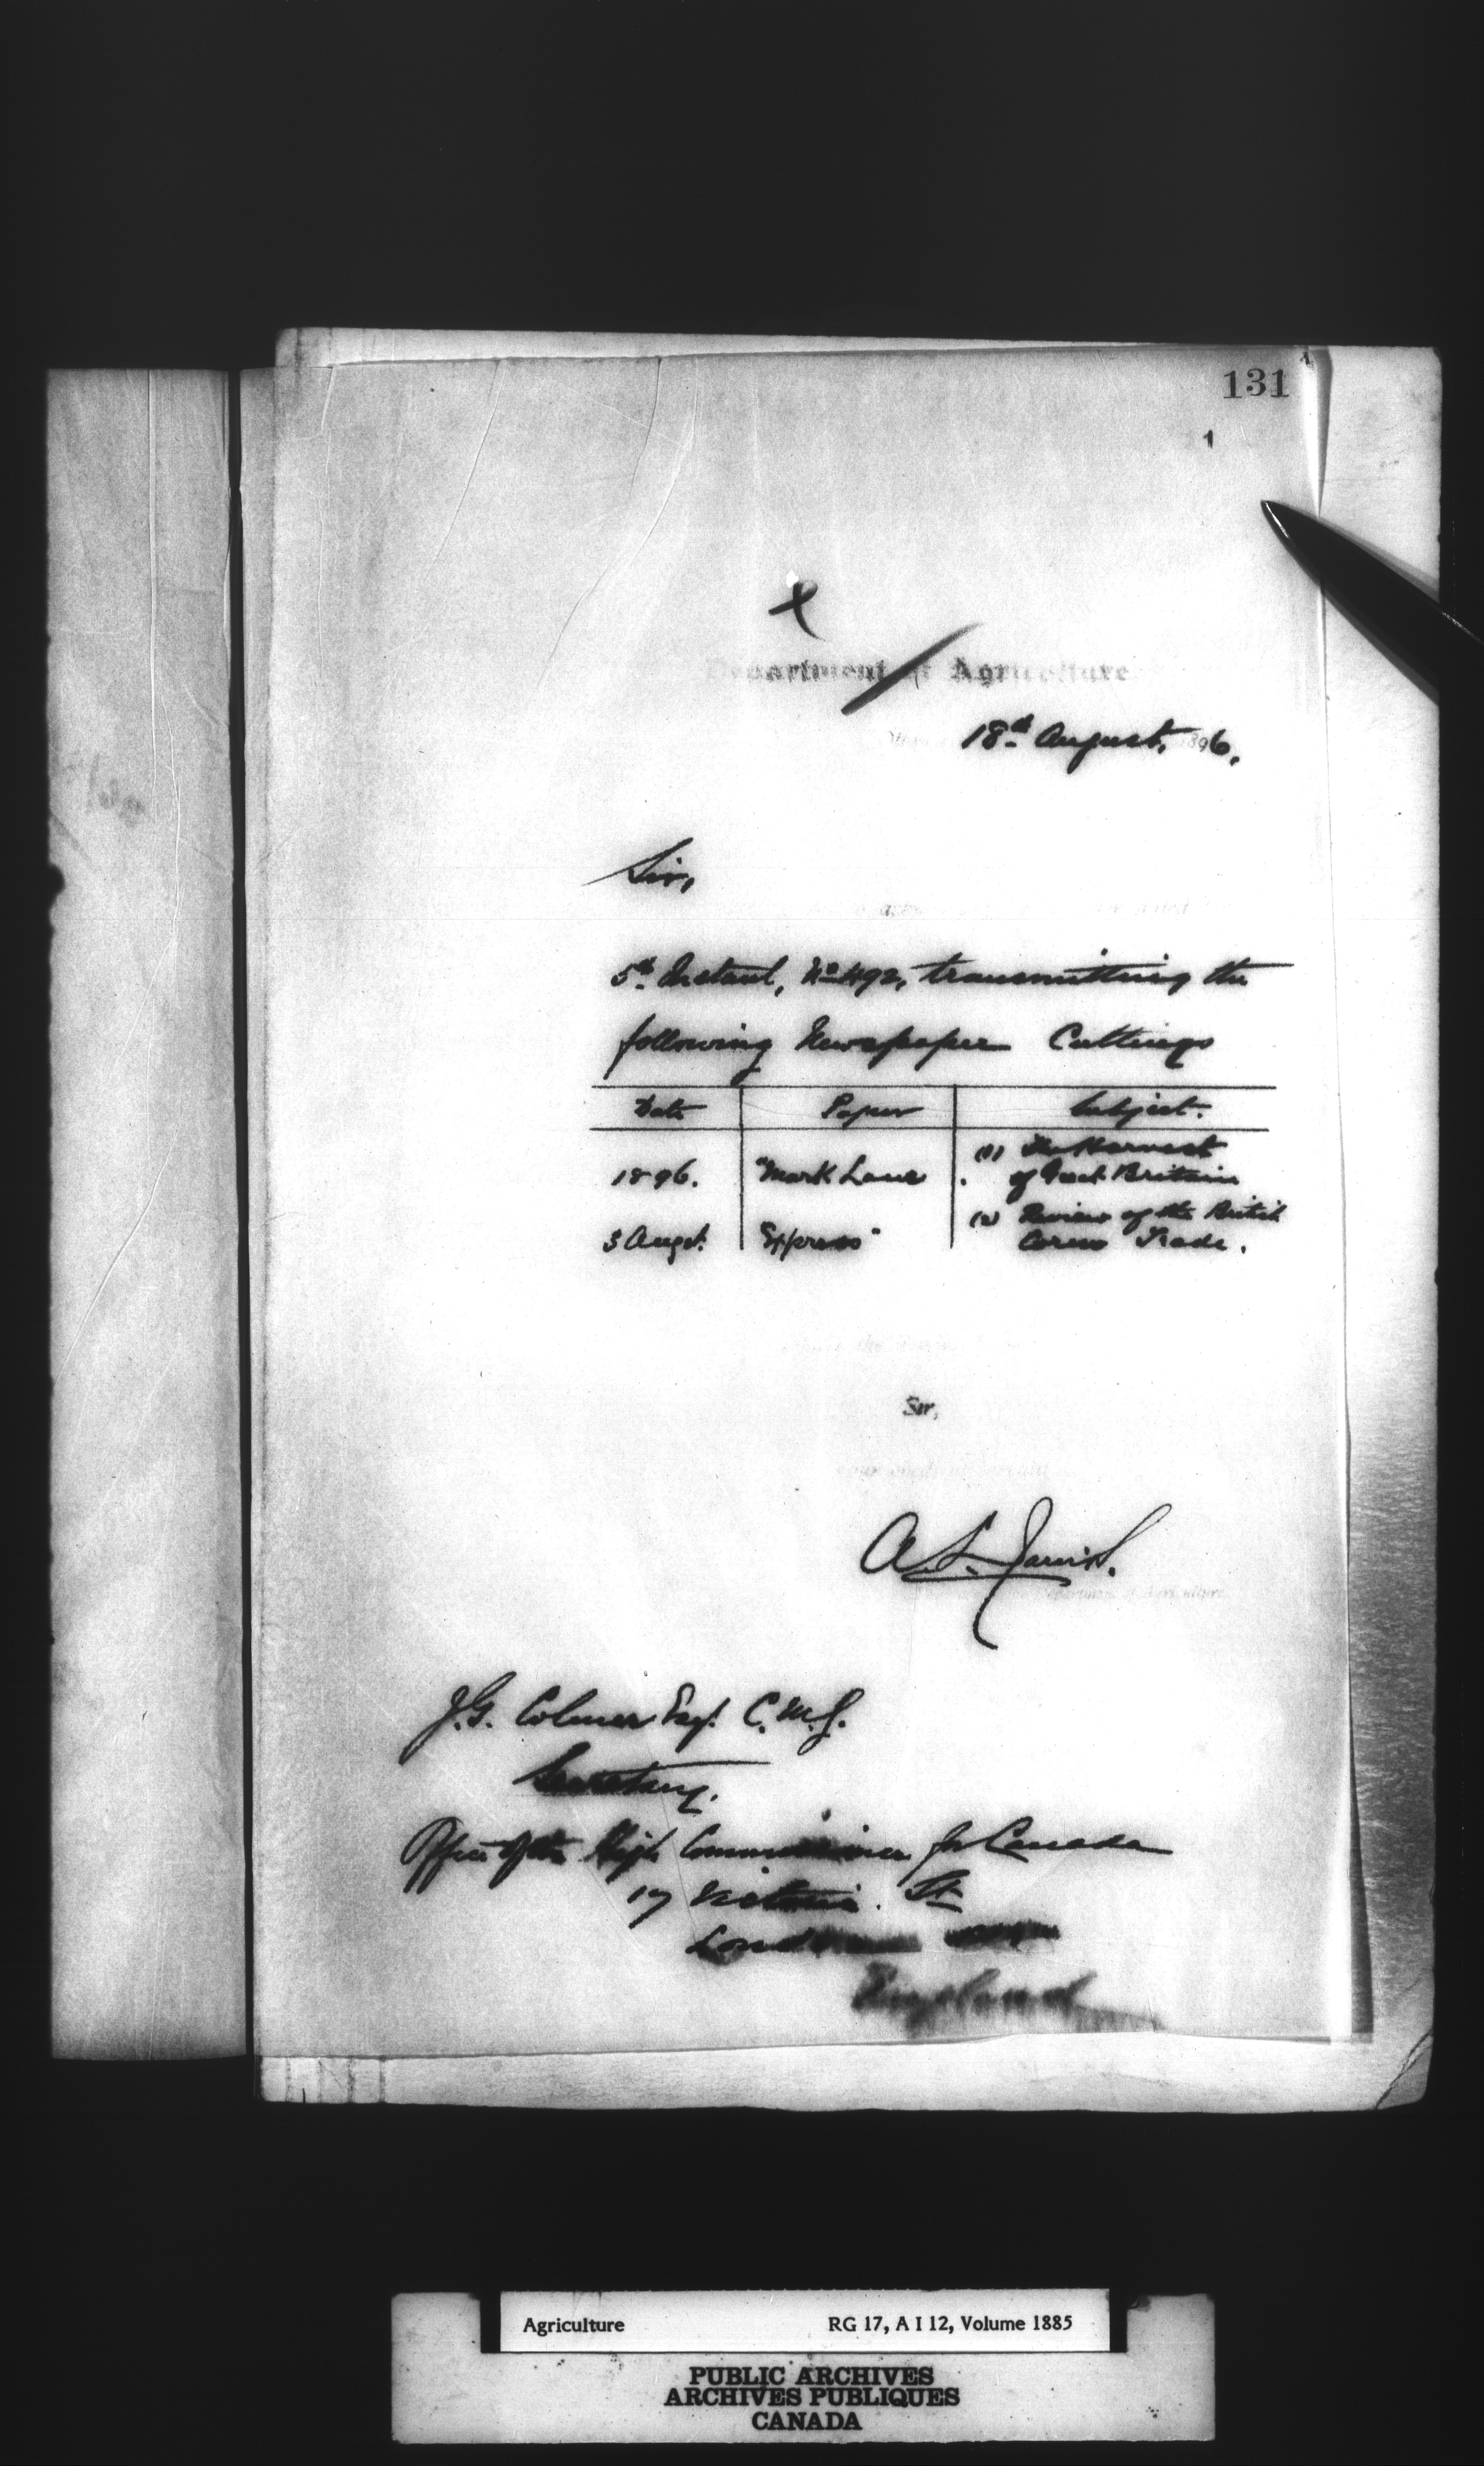 131
Department of Agriculture
18th August, 1896.
Sir,
5th Instant, No 492, transmitting the
following Newspaper Cuttings
Date Paper Subject.
1896. "Mark Lane (1) The Harvest
of Great Britain
3 Augt. Express" (2) Review of the British
Corn Trade.
Sir,
A. L. Jarvis.
Department of Agriculture
J. G. Colmer Esq. C. M. G.
Secretary.
Office of the High Commissioner for Canada
17 Victoria St
London
England
Agriculture RG 17, A I 12, Volume 1885
PUBLIC ARCHIVES
ARCHIVES PUBLIQUES
CANADA